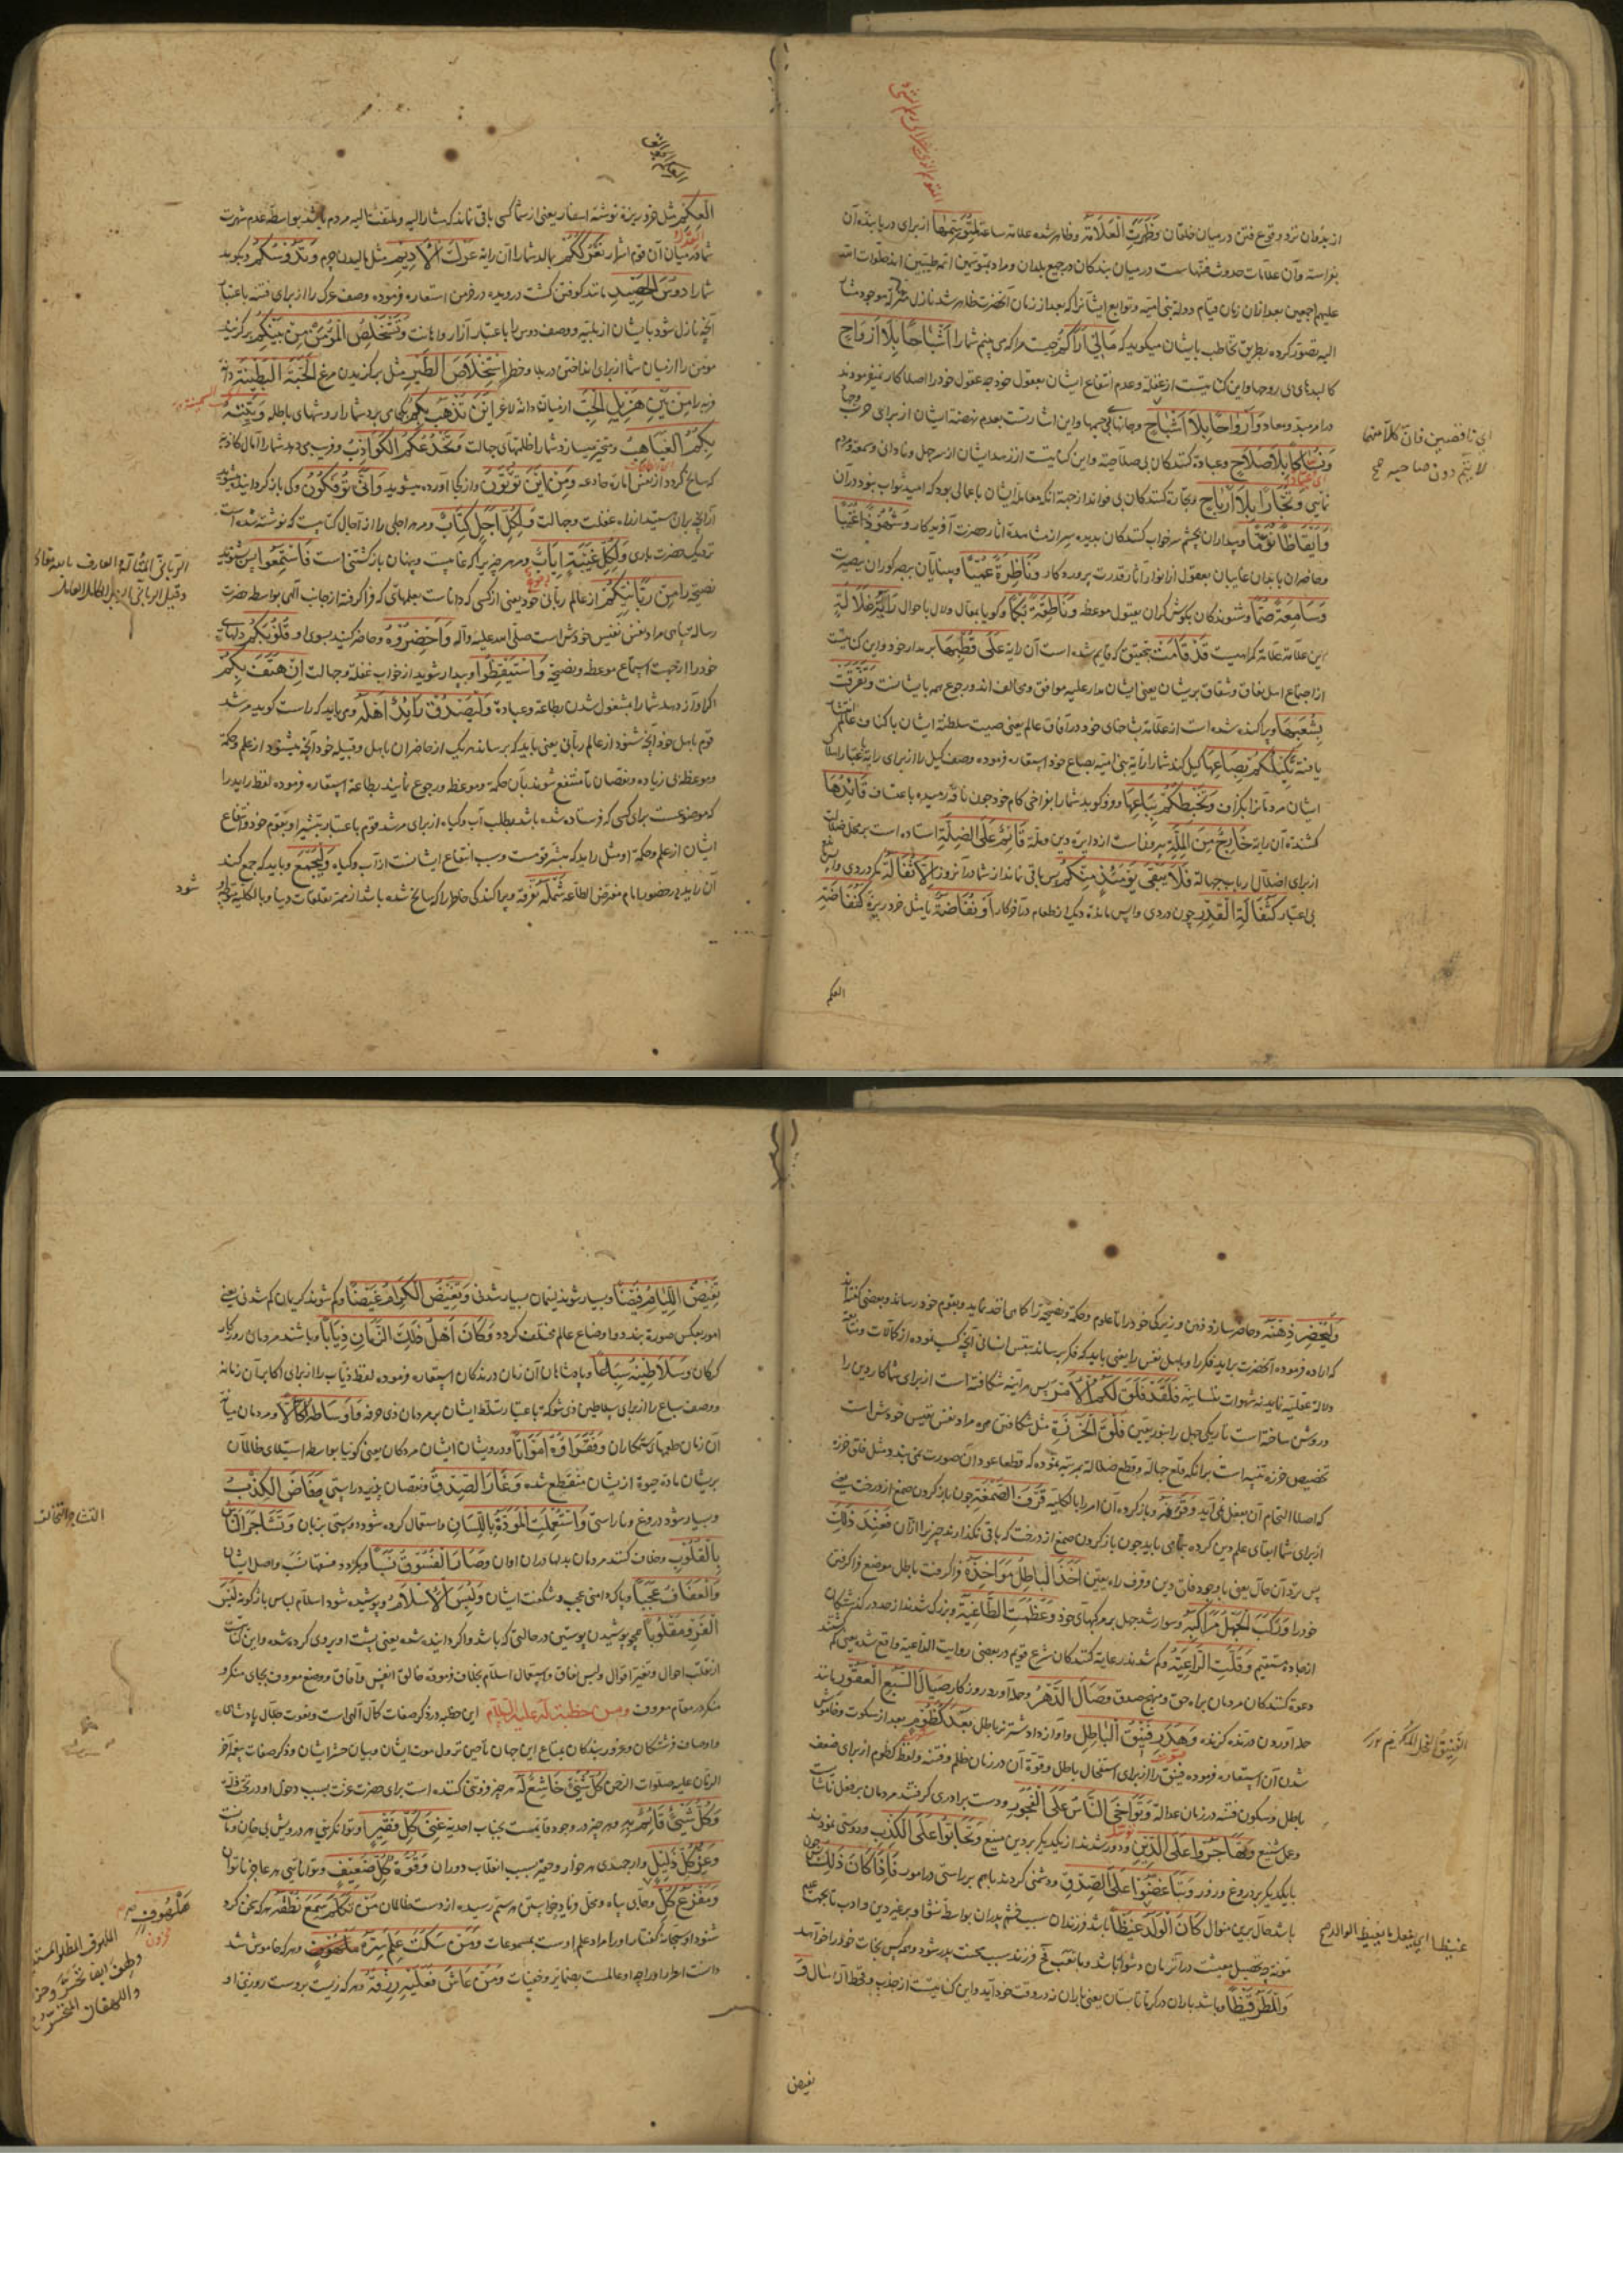 از بدوان نزد وقوع فتن در میان خلقان وَظَهَرَتِ الْعَلَامَةُ وظاهر شده علامة ساعة لِمُتَوَسِّمِهَا از برای دریابنده آن
بفراسة وآن علامات حدوث فتنهاست در میان بندکان در جمیع بلدان ومراد بمتوسمین ائمه طیبین اند صلوات الله
علیهم اجمعین بعد از آن زمان قیام دولة بنی امیه وتوابع ایشانرا که بعد از زمان آنحضرت ظاهر شد نازل منزلة موجود
الیه تصور کرده بطریق تخاطب بایشان میکوید که مَالِي أَرَاكُمْ چیست مرا که می بینم شما را أَشْبَاحًا بِلَا أَرْوَاحٍ
کالبدهای بی روحها واین کنایتست از غفلة وعدم انتفاع ایشان بعقول خود چه عقول خود را اصلا کار نمیفرمودند
در امر مبدء ومعاد وَأَرْوَاحًا بِلَا أَشْبَاحٍ وجانهای بی جسمها واین اشارتست بعدم نهضة ایشان از برای حرب
وَنُسَّاكًا بِلَا صَلَاحٍ وعبادة کنندکان بی صلاحیة واین کنایتست از زهد ایشان از سر جهل ونادانی وسمعه ومردم
نمایی وَتُجَّارًا بِلَا أَرْبَاحٍ وتجارة کنندکان بی فواید از جهة آنکه معاملة ایشان باعمالی بود که امید ثواب نبود در آن
وَأَيْقَاظًا نُوَّمًا وبیداران بچشم سر خواب کنندکان بدیده سر از مشاهدة آثار حضرت آفریدکار وَشُهُودًا غُيَّبًا
وحاضران بابدان غایبان بعقول از انوار آثار قدرت پروردکار وَنَاظِرَةً عُمْيًا وبینایان ببصر کوران ببصیرت
وَسَامِعَةً صُمًّا وشنوندکان بکوش کران بقبول موعظه وَنَاطِقَةً بُكْمًا وکویا بمقال ولال باحوال رَايَةُ ضَلَالَةٍ
این علامة علامة کمراهیست قَدْ قَامَتْ بتحقیق که قایم شده است آن رایة عَلَى قُطْبِهَا بر مدار خود واین کنایتست
از اجتماع اهل نفاق وشقاق بریشان یعنی ایشان مدار علیه موافق ومخالف اند ورجوع همه بایشانست وَتَفَرَّقَتْ
بِشُعَبِهَا وپراکنده شده است از علامة شاخهای خود در آفاق عالم یعنی صیت سلطنة ایشان باکناف عالم
یافته تَكِيلُكُمْ بِصَاعِهَا کیل کند شما را رایة بنی امیه بصاع خود استعاره فرموده وصف کیل را از برای رایة
ایشان مردمانرا بکزاف وَتَخْبِطُكُمْ بِبَاعِهَا وفرو کوبد شما را بفراخی کام خود چون ناقة رمیده باعتساف قَائِدُهَا
کشندة آن رایة خَارِجٌ مِنَ الْمِلَّةِ بیرونست از دایرة دین وملة قَائِمٌ عَلَى الضِّلَّةِ استاده است بر محل ضلالت
از برای اضلال ارباب جهالة فَلَا يَبْقَى يَوْمَئِذٍ مِنْكُمْ پس باقی نماند از شما در آنروز إِلَّا ثُفَالَةٌ مکر دردی
بی اعتبار كَثُفَالَةِ الْقِدْرِ چون دردی واپس مانده دیک از طعام در آخر کار أَوْ نُفَاضَةٌ یا مثل خرد ریزه كَنُفَاضَةِ
العکم
ای ناقصین فان کلا منهما
لا یتم دون صاحبه صح
الْعِكْمِ مثل خرد ریزة توشة اسفار یعنی از شما کسی باقی نماند که مشار الیه وملتفت الیه مردم باشد بواسطة عدم شهرت
شما در میان آن قوم اشرار تَعْرُكُكُمْ بمالد شما را آن رایة عَرْكَ الْأَدِيمِ مثل مالیدن چرم وَتَدُوسُكُمْ وبکوبد
شما را دَوْسَ الْحَصِيدِ مانند کوفتن کشت درویده در خرمن استعاره فرموده وصف عرک را از برای فتنه باعتبار
آنچه نازل شود بایشان از بلیه ووصف دوس را باعتبار آزار واهانت وَتَسْتَخْلِصُ الْمُؤْمِنَ مِنْ بَيْنِكُمْ وبرکزیند
مؤمن را از میان شما از برای انداختن در بلا وخطر اسْتِخْلَاصَ الطَّيْرِ مثل برکزیدن مرغ الْحَبَّةَ الْبَطِينَةَ دانه
فربه را مِنْ بَيْنِ هَزِيلِ الْحَبِّ از میان دانة لاغر أَيْنَ تَذْهَبُ بِكُمْ بکجا می برد شما را روشهای باطله وَتَتِيهُ
بِكُمُ الْغَيَاهِبُ ومتحیر میسازد شما را ظلمتهای جهالت وَتَخْدَعُكُمُ الْكَوَاذِبُ وفریب می دهد شما را آمال کاذبه
که سانح کردد از نفس امارة خادعه وَمِنْ أَيْنَ تُؤْتَوْنَ واز کجا آورده میشوید وَأَنَّى تُؤْفَكُونَ وکی باز کردانیده میشوید
از آنچه بر آن هستید از راه غفلت وجهالت فَلِكُلِّ أَجَلٍ كِتَابٌ ومر هر اجلی را از آجال کتابیست که نوشته شده است
نزدیک حضرت باری وَلِكُلِّ غَيْبَةٍ إِيَابٌ ومر هر چیز را که غایبست وپنهان بازکشتنی است فَاسْتَمِعُوا پس بشنوید
نصیحة را مِنْ رَبَّانِيِّكُمْ از عالم ربانی خود یعنی از کسی که داناست بعلمهای که فرا کرفته از جانب الهی بواسطة حضرت
رسالة پناهی مراد نفس نفیس خودش است صلی الله علیه وآله وَأَحْضِرُوهُ وحاضر کنید بسوی او قُلُوبَكُمْ دلهای
خود را از جهت استماع موعظه ونصیحة وَاسْتَيْقِظُوا وبیدار شوید از خواب غفلة وجهالت إِنْ هَتَفَ بِكُمْ
اگر آواز دهد شما را بمشغول شدن بطاعة وعبادة وَلْيَصْدُقْ رَائِدٌ أَهْلَهُ ومی باید که راست کوید مرشد
قوم باهل خود آنچه شنود از عالم ربانی یعنی باید که برساند هر یک از حاضران باهل وقبیله خود آنچه میشنود از علم وحکمة
وموعظه بی زیاده ونقصان تا منتفع شوند بآن حکمة وموعظه ورجوع نمایند بطاعة استعاره فرموده لفظ راید را
که موضوعست برای کسی که فرستاده شده باشد بطلب آب وکیاه از برای مرشد قوم باعتبار تبشیر او بقوم خود وانتفاع
ایشان از علم وحکمة او مثل راید که مبشر قومست وسبب انتفاع ایشانست از آب وکیاه وَلْيَجْمَعْ وباید که جمع کند
آن راید در حضور امام مفترض الطاعة شَمْلَهُ تفرقه وپراکندکی خاطر را که سانح شده باشد از همة تعلقات دنیا وبالکلیه
شود
الربانی المتأله العارف بالله تعالی
وَلْيُحْضِرْ ذِهْنَهُ وحاضر سازد ذهن وزیرکی خود را تا علوم وحکمة ونصیحة را کما هی اخذ نماید وبقوم خود رساند وبعضی کفته اند
که اراده فرموده آنحضرت براید فکر را وباهل نفس را یعنی باید که فکر برساند بنفس انسانی آنچه کسب نموده از کمالات
ودلالة عقلیه نماید نه شهوات نفسانیه فَلَقَدْ فَلَقَ لَكُمُ الْأَمْرَ پس هر آینه شکافته است از برای شما کار دین را
وروشن ساخته است تاریکی جهل را بنور یقین فَلْقَ الْخَرَزَةِ مثل شکافتن مهره مراد نفس نفیس خودش است
که اصلا التیام آن بفعل نمی آید وَقَرَفَهُ وباز کرده آن امر را بالکلیه قَرْفَ الصَّمْغَةِ چون باز کردن صمغ از درخت یعنی
از برای شما ابقای علم دین کرده بتمامی باید چون باز کردن صمغ از درخت که باقی نکذارند چیزی را از آن فَعِنْدَ ذَلِكَ
پس نزد آن حال یعنی با وجود فلق دین وقرف راه یقین أَخَذَ الْبَاطِلُ مَآخِذَهُ فرا کرفت باطل موضع فرا کرفتن
خود را وَرَكِبَ الْجَهْلُ مَرَاكِبَهُ وسوار شد جهل بر مرکبهای خود وَعَظُمَتِ الطَّاغِيَةُ وبزرک شدند از حد در کذشتکان
از جادة مستقیم وَقَلَّتِ الرَّاعِيَةُ وکم شدند رعایة کنندکان شرع قویم ودر بعضی روایت الداعیه واقع شده یعنی کم شدند
دعوة کنندکان مردمان براه حق ومنهج صدق وَصَالَ الدَّهْرُ وحمله آورد روزکار صِيَالَ السَّبُعِ الْعَقُورِ مانند
حمله آوردن درنده کزنده وَهَدَرَ فَنِيقُ الْبَاطِلِ وآواز داد شتر نر باطل بَعْدَ كُظُومٍ بعد از سکوت وخاموش
شدن آن استعاره فرموده فنیق را از برای استفحال باطل وقوة آن در زمان ظلم وفتنه ولفظ کظوم از برای ضعف
باطل وسکون فتنه در زمان عدالة وَتَوَاخَى النَّاسُ عَلَى الْفُجُورِ ودست برادری کرفتند مردمان بر فعل ناشایست
وعمل شنیع وَتَهَاجَرُوا عَلَى الدِّينِ ودور شدند از یکدیکر بر دین منیع وَتَحَابُّوا عَلَى الْكَذِبِ ودوستی نمودند
بایکدیکر بر دروغ وزور وَتَبَاغَضُوا عَلَى الصِّدْقِ ودشمنی کردند باهم بر راستی در امور فَإِذَا كَانَ ذَلِكَ پس چون
باشد حال برین منوال كَانَ الْوَلَدُ غَيْظًا باشد فرزندان سبب خشم پدران بواسطة شقاوتر غیر دین وادب
وَالْمَطَرُ قَيْظًا وباشد باران در کرما تابستان یعنی باران نه در وقت خود آید واین کنایتست از جذب وقحط
تفیض
الفنیق الفحل المکرم
غیظا ای یفعل ما یغیظ الوالد صح
تَفِيضُ اللِّئَامُ فَيْضًا وبسیار شوند لئیمان بسیار شدنی وَتَغِيضُ الْكِرَامُ غَيْضًا وکم شوند کریمان کم شدنی یعنی
امور بعکس صورة بندد واوضاع عالم مختلف کردد وَكَانَ أَهْلُ ذَلِكَ الزَّمَانِ ذِئَابًا وباشند مردمان روزکار
کرکان وَسَلَاطِينُهُ سِبَاعًا وپادشاهان آن زمان درندکان استعاره فرموده لفظ ذیاب را از برای اکابر آن زمانه
ووصف سباع را از برای سلاطین ذی شوکة باعتبار تسلط ایشان بر مردمان ذی حرفه وَأَوْسَاطُهُ أُكَّالًا ومردمان میانة
آن زمان طعمهای ستمکاران وَفُقَرَاؤُهُ أَمْوَاتًا ودرویشان ایشان مردکان یعنی کوئیا بواسطة استیلای ظالمان
بریشان مادة حیوة از یشان منقطع شده وَغَارَ الصِّدْقُ ونقصان پذیرد راستی وَفَاضَ الْكَذِبُ
وبسیار شود دروغ وناراستی وَاسْتُعْمِلَتِ الْمَوَدَّةُ بِاللِّسَانِ واستعمال کرده شود دوستی بزبان وَتَشَاجَرَ النَّاسُ
بِالْقُلُوبِ وخلاف کنند مردمان بدلها در آن اوان وَصَارَ الْفُسُوقُ نَسَبًا وبکردد فسقها نسب واصل ایشان
وَالْعَفَافُ عَجَبًا وپاک دامنی عجب وشکفت ایشان وَلُبِسَ الْإِسْلَامُ وپوشیده شود اسلام لباس باژکونه لُبْسَ
الْفَرْوِ مَقْلُوبًا همچو پوشیدن پوستین در حالتی که باشد واکردانیده شده یعنی پشت او بروی کرده شده واین کنایتست
از تقلب احوال وتغیر اقوال ولبس نفاق واستعمال اسلام بخلاف فرمودة خالق انفس وآفاق ووضع معروف بجای منکر و
منکر در مقام معروف ومن خطبة له علیه السلام این خطبه در ذکر صفات کمال الهی است ونعوت جلال پادشاهی
واوصاف فرشتکان وغرور بندکان بمتاع این جهان تا حین نزول موت ایشان وبیان حشر ایشان وذکر صفات پیغمبر آخر
الزمان علیه صلوات الرحمن كُلُّ شَيْءٍ خَاشِعٌ لَهُ هر چیز فروتنی کننده است برای حضرت عزت بسبب دخول او در تحت
وَكُلُّ شَيْءٍ قَائِمٌ بِهِ وهر چیز در وجود قایمست بجناب احدیة غِنَى كُلِّ فَقِيرٍ وتوانکری هر درویش بی خان ومان
وَعِزُّ كُلِّ ذَلِيلٍ وارجمندی هر خوار وحقیر بسبب انقلاب دوران وَقُوَّةُ كُلِّ ضَعِيفٍ وتوانایی هر عاجز ناتوان
وَمَفْزَعُ كُلِّ وجای پناه ومحل داد خواستن هر ستم رسیده از دست ظالمان مَنْ تَكَلَّمَ سَمِعَ نُطْقَهُ هر که سخن کرد
شنود او سبحانه کفتار او را مراد علم اوست بمسموعات وَمَنْ سَكَتَ عَلِمَ سِرَّهُ وهر که خاموش شد
دانست اسرار او را چه او عالمست بضمایر وخفیات وَمَنْ عَاشَ فَعَلَيْهِ رِزْقُهُ وهر که زیست بروست روزی او
التشاجر التخالف
مَلْهُوفٍ